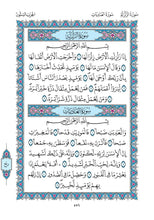 سورة الزلزلة
بسم الله الرحمن الرحيم
إذا زلزلت الأرض زلزالها وأخرجت الأرض أثقالها
وقال الإنسان ما لها يومئذ تحدث أخبارها
بأن ربك أوحى لها يومئذ يصدر الناس أشتاتا ليروا
أعمالهم فمن يعمل مثقال ذرة خيرا يره
ومن يعمل مثقال ذرة شرا يره
سورة العاديات
بسم الله الرحمن الرحيم
والعاديات ضبحا فالموريات قدحا فالمغيرات
صبحا فأثرن به نقعا فوسطن به جمعا
إن الإنسان لربه لكنود وإنه على ذلك لشهيد
وإنه لحب الخير لشديد أفلا يعلم إذا بعثر
ما في القبور وحصل ما في الصدور إن ربهم
بهم يومئذ لخبير